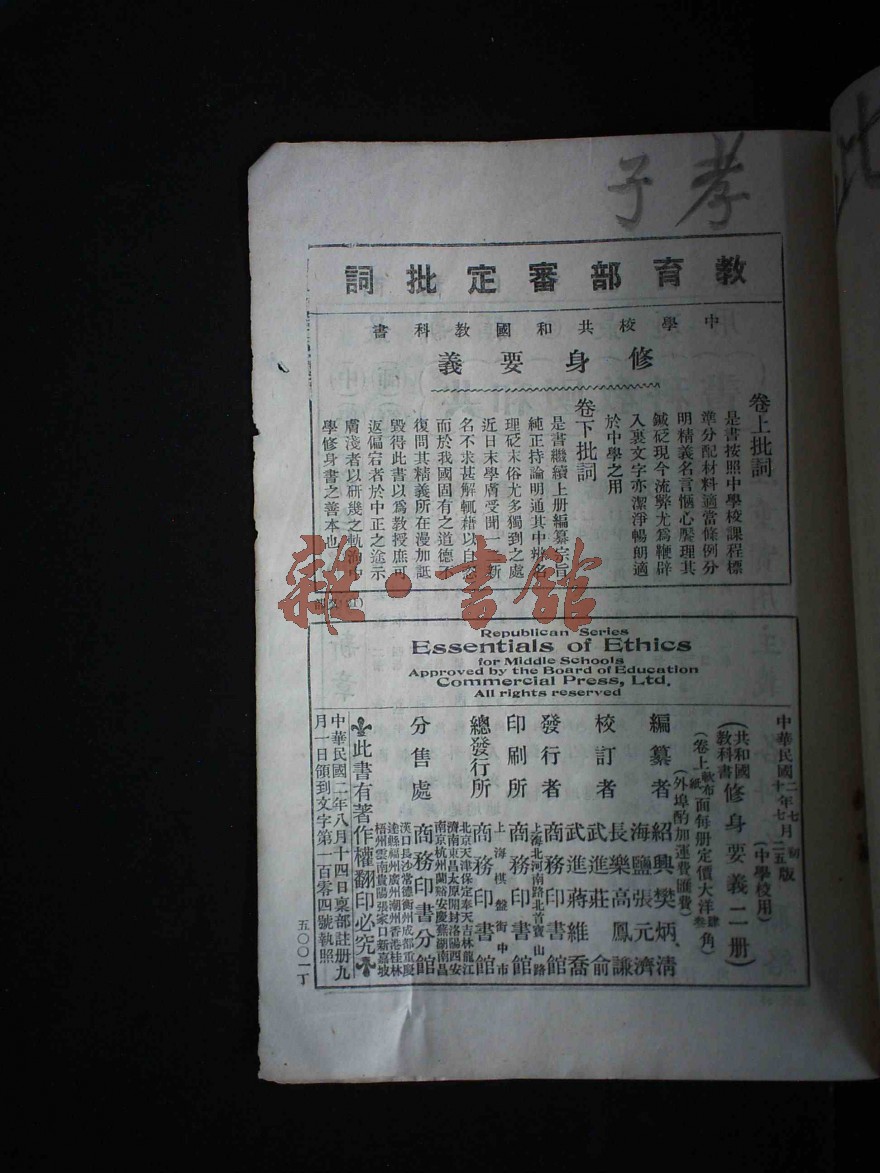 孝子
教育部審定批詞
中學校共和國教科書
修身要義
卷上批詞
是書按照中學校課程標
準分配材料適當條例分
明精義名言愜心饜理其
鍼砭現今流弊尤爲鞭辟
入裏文字亦潔淨暢朗適
於中學之用
卷下批詞
是書繼續上册編纂宗旨
純正持論明通其中辨名
理砭末俗尤多獨到之處
近日末學膚受聞一二新
名不求甚解輒藉以自恣
而於我國固有之道德不
復問其精義所在漫加詆
毀得此書以爲教授庶可
返偏宕者於中正之途示
膚淺者以研幾之軌洵中
學修身書之善本也
雜·書館
Republican Series
Essentials of Ethics
for Middle Schools
Approved by the Board of Education
Commercial Press, Ltd.
All rights reserved
中華民國二年七月初版
十年七月二五版
(中學校用)
(共和國教科書修身要義二册)
(卷上紙面每册定價大洋叁角)
軟布 肆
(外埠酌加運費匯費)
編纂者 紹興樊炳清
校訂者 海鹽張元濟
長樂高鳳謙
武進莊俞
武進蔣維喬
發行者 商務印書館
印刷所 上海北河南路北首寶山路
商務印書館
總發行所 上海棋盤街中市
商務印書館
分售處 北京天津保定奉天吉林龍江
濟南東昌太原開封洛陽西安
南京杭州蘭谿安慶蕪湖南昌
商務印書分館
漢口長沙常德衡州成都重慶
達縣福州廣州潮州香港桂林
梧州雲南貴陽張家口新嘉坡
此書有著作權翻印必究
中華民國二年八月十四日稟部註册九
月一日領到文字第一百零四號執照
五〇〇一丁